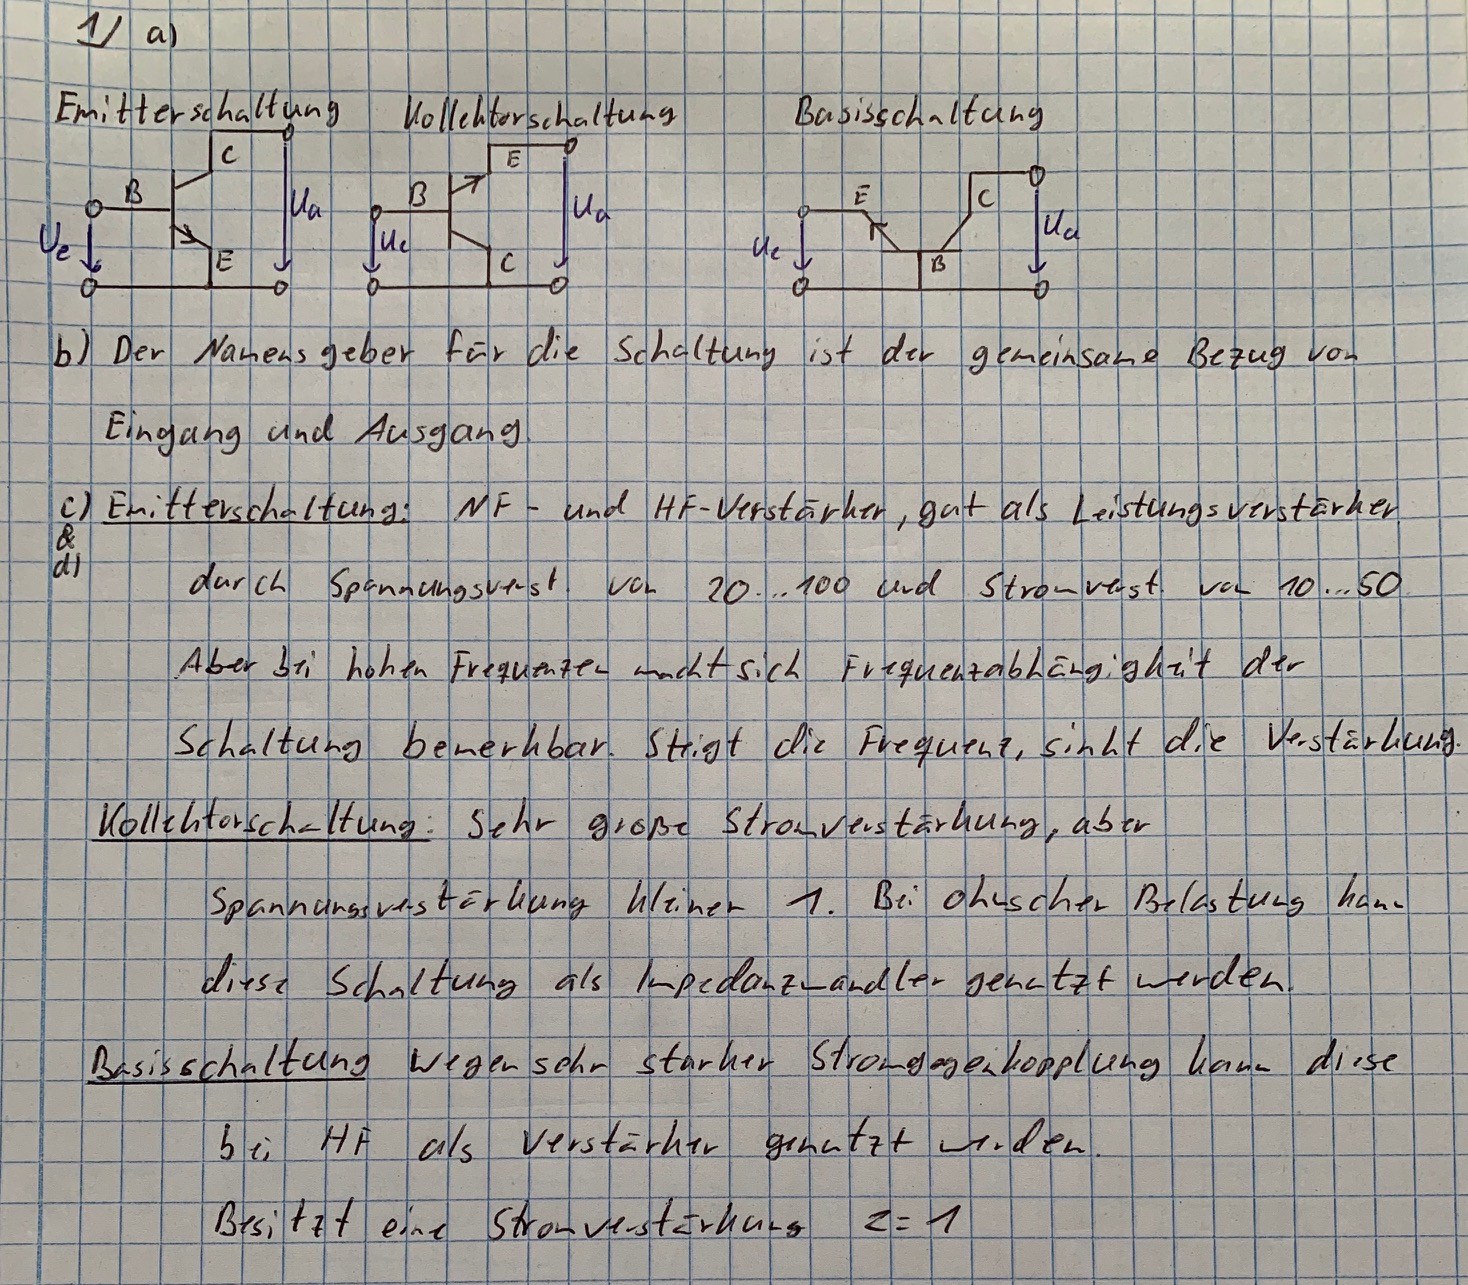 1/ a)
Emitterschaltung Kollektorschaltung Basisschaltung
B C E Ue Ua
B E C Ue Ua
E C B Ue Ua
b) Der Namensgeber für die Schaltung ist der gemeinsame Bezug von
Eingang und Ausgang
c) Emitterschaltung: NF- und HF-Verstärker, gut als Leistungsverstärker
&
d)
durch Spannungsverst. von 20...100 und Stromverst. von 10...50
Aber bei hohen Frequenzen macht sich Frequenzabhängigkeit der
Schaltung bemerkbar. Steigt die Frequenz, sinkt die Verstärkung.
Kollektorschaltung: Sehr große Stromverstärkung, aber
Spannungsverstärkung kleiner 1. Bei ohmscher Belastung kann
diese Schaltung als Impedanzwandler genutzt werden.
Basisschaltung Wegen sehr starker Stromgegenkopplung kann diese
bei HF als Verstärker genutzt werden.
Besitzt eine Stromverstärkung = 1